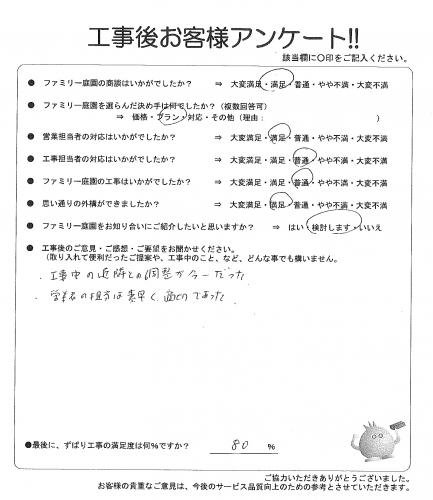 工事後お客様アンケート!!
該当欄に○印をご記入ください。
● ファミリー庭園の商談はいかがでしたか? ⇒ 大変満足・満足・普通・やや不満・大変不満
● ファミリー庭園を選らんだ決め手は何でしたか?(複数回答可)
⇒ 価格・プラン・対応・その他(理由: )
● 営業担当者の対応はいかがでしたか? ⇒ 大変満足・満足・普通・やや不満・大変不満
● 工事担当者の対応はいかがでしたか? ⇒ 大変満足・満足・普通・やや不満・大変不満
● ファミリー庭園の工事はいかがでしたか? ⇒ 大変満足・満足・普通・やや不満・大変不満
● 思い通りの外構ができましたか? ⇒ 大変満足・満足・普通・やや不満・大変不満
● ファミリー庭園をお知り合いにご紹介したいと思いますか? ⇒ はい・検討します・いいえ
● 工事後のご意見・ご感想・ご要望をお聞かせください。
(取り入れて便利だったご提案や、工事中のこと、など、どんな事でも構いません。
・工事中の近隣との調整が今一だった
・営業者の担当は素早く、適切であった
●最後に、ずばり工事の満足度は何%ですか? 80 %
ご協力いただきありがとうございました。
お客様の貴重なご意見は、今後のサービス品質向上のための参考とさせていただきます。